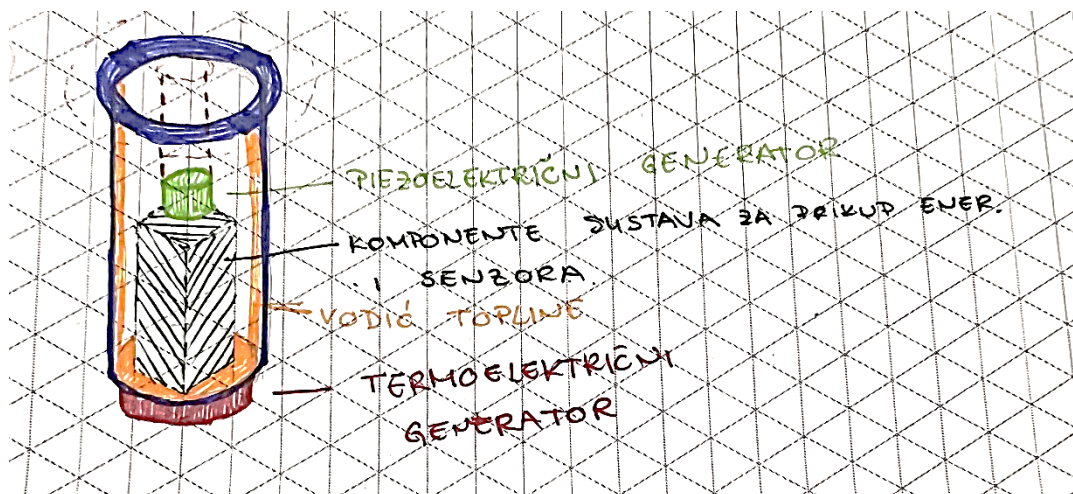 PIEZOELEKTRIČNI GENERATOR
KOMPONENTE SUSTAVA ZA PRIKUP ENER.
I SENZORA.
VODIČ TOPLINE
TERMOELEKTRIČNI
GENERATOR